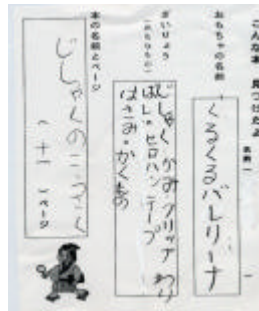 こんな本 見つけたよ
名前
おもちゃの名前
くるくるバレリーナ
ざいりょう
じしゃく・かみ・クリップ わり
ばし・セロハンテープ
はさみ・かくもの
本の名前とページ
じしゃくの
(十一)ページ